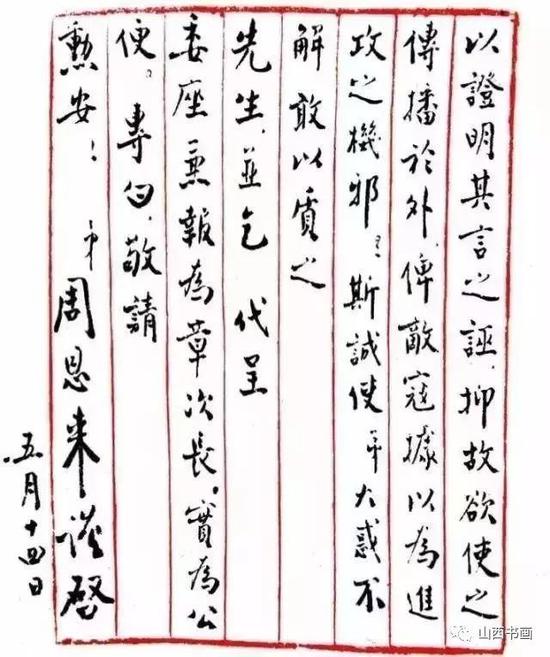 以證明其言之誣，抑故欲使之
傳播於外，俾敵寇據以為進
攻之機邪？斯誠使弟大惑不
解敢以質之
先生，並乞 代呈
委座兼報為章次長，實為公
便。專白，敬請
勳安！
弟周恩來謹啓
五月十四日
山西书画